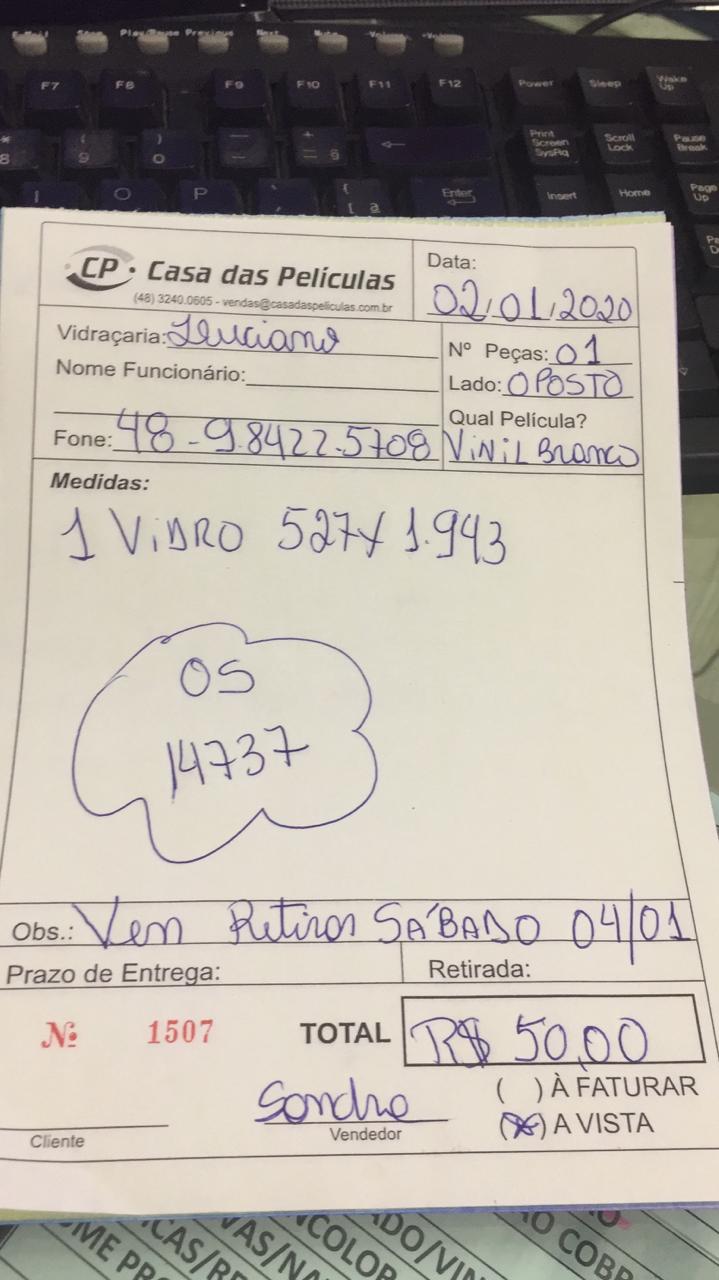 Play/Pause Previous Next Mute -Volume +Volume
F7 F8 F9 F10 F11 F12 Power Sleep Wake Up
8 9 0 Print Screen SysRq Scroll Lock Pause Break
I O P Enter Insert Home Page Up
CP Casa das Películas
(48) 3240.0605 - vendas@casadaspeliculas.com.br
Data:
02,01,2020
Vidraçaria: Luciano
Nº Peças: 01
Nome Funcionário:
Lado: OPOSTO
Qual Película?
Fone: 48-9.8422.5708
Vinil Branco
Medidas:
1 VIDRO 527x 1.943
OS
14737
Obs.: Vem Retirar SÁBADO 04/01
Prazo de Entrega:
Retirada:
Nº 1507
TOTAL R$ 50,00
( ) À FATURAR
(X) A VISTA
Sandro
Cliente
Vendedor